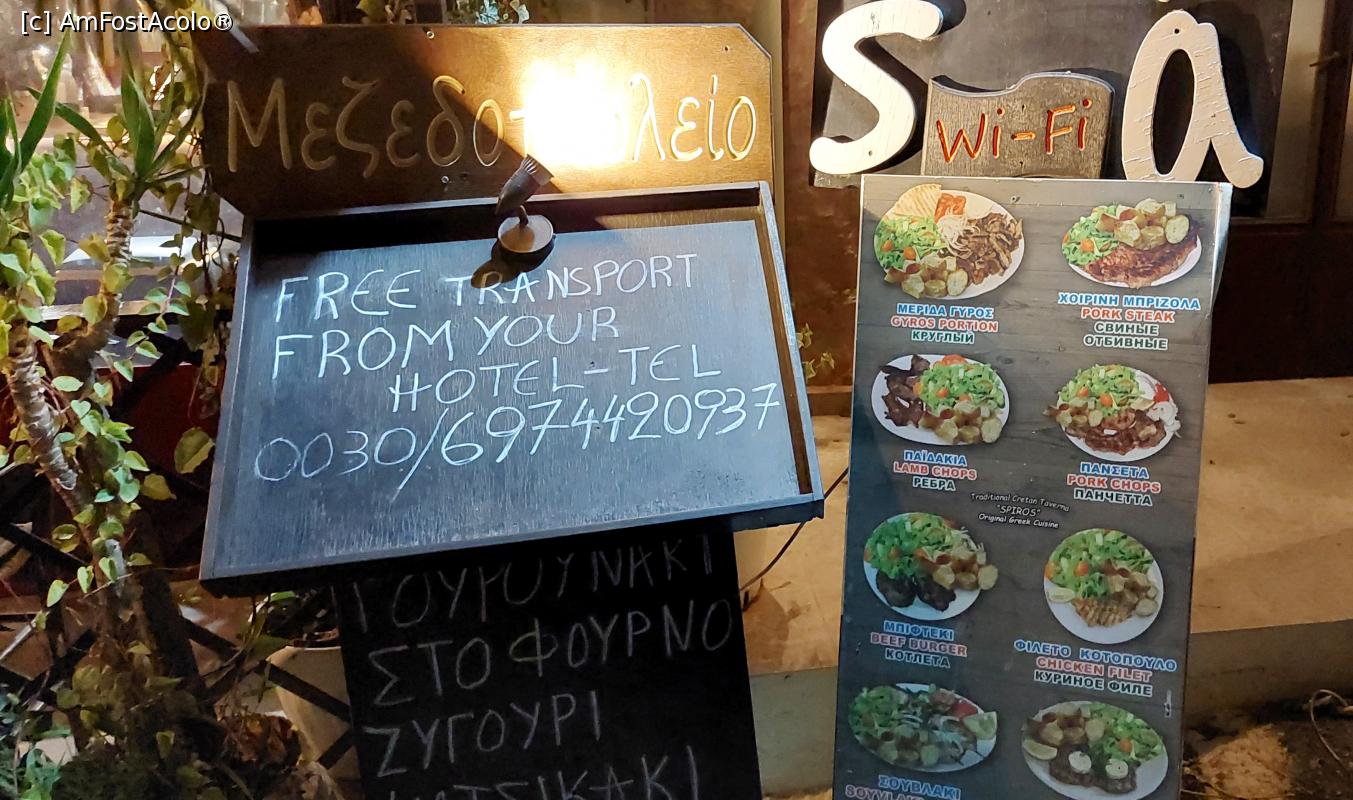 [c] AmFostAcolo®
Μεζεδοπωλείο
S a
Wi-Fi
FREE TRANSPORT
FROM YOUR
HOTEL-TEL
0030/6974420937
ΓΟΥΡΟΥΝΑΚΙ
ΣΤΟ ΦΟΥΡΝΟ
ΖΥΓΟΥΡΙ
ΚΑΤΣΙΚΑΚΙ
ΜΕΡΙΔΑ ΓΥΡΟΣ
GYROS PORTION
КРУГЛЫЙ
ΧΟΙΡΙΝΗ ΜΠΡΙΖΟΛΑ
PORK STEAK
СВИНЫЕ
ОТБИВНЫЕ
ΠΑΪΔΑΚΙΑ
LAMB CHOPS
РЕБРА
ΠΑΝΣΕΤΑ
PORK CHOPS
ПАНЧЕТТА
Traditional Cretan Taverna
"SPIROS"
Original Greek Cuisine
ΜΠΙΦΤΕΚΙ
BEEF BURGER
КОТЛЕТА
ΦΙΛΕΤΟ ΚΟΤΟΠΟΥΛΟ
CHICKEN FILET
КУРИНОЕ ФИЛЕ
ΣΟΥΒΛΑΚΙ
SOUVLAKI